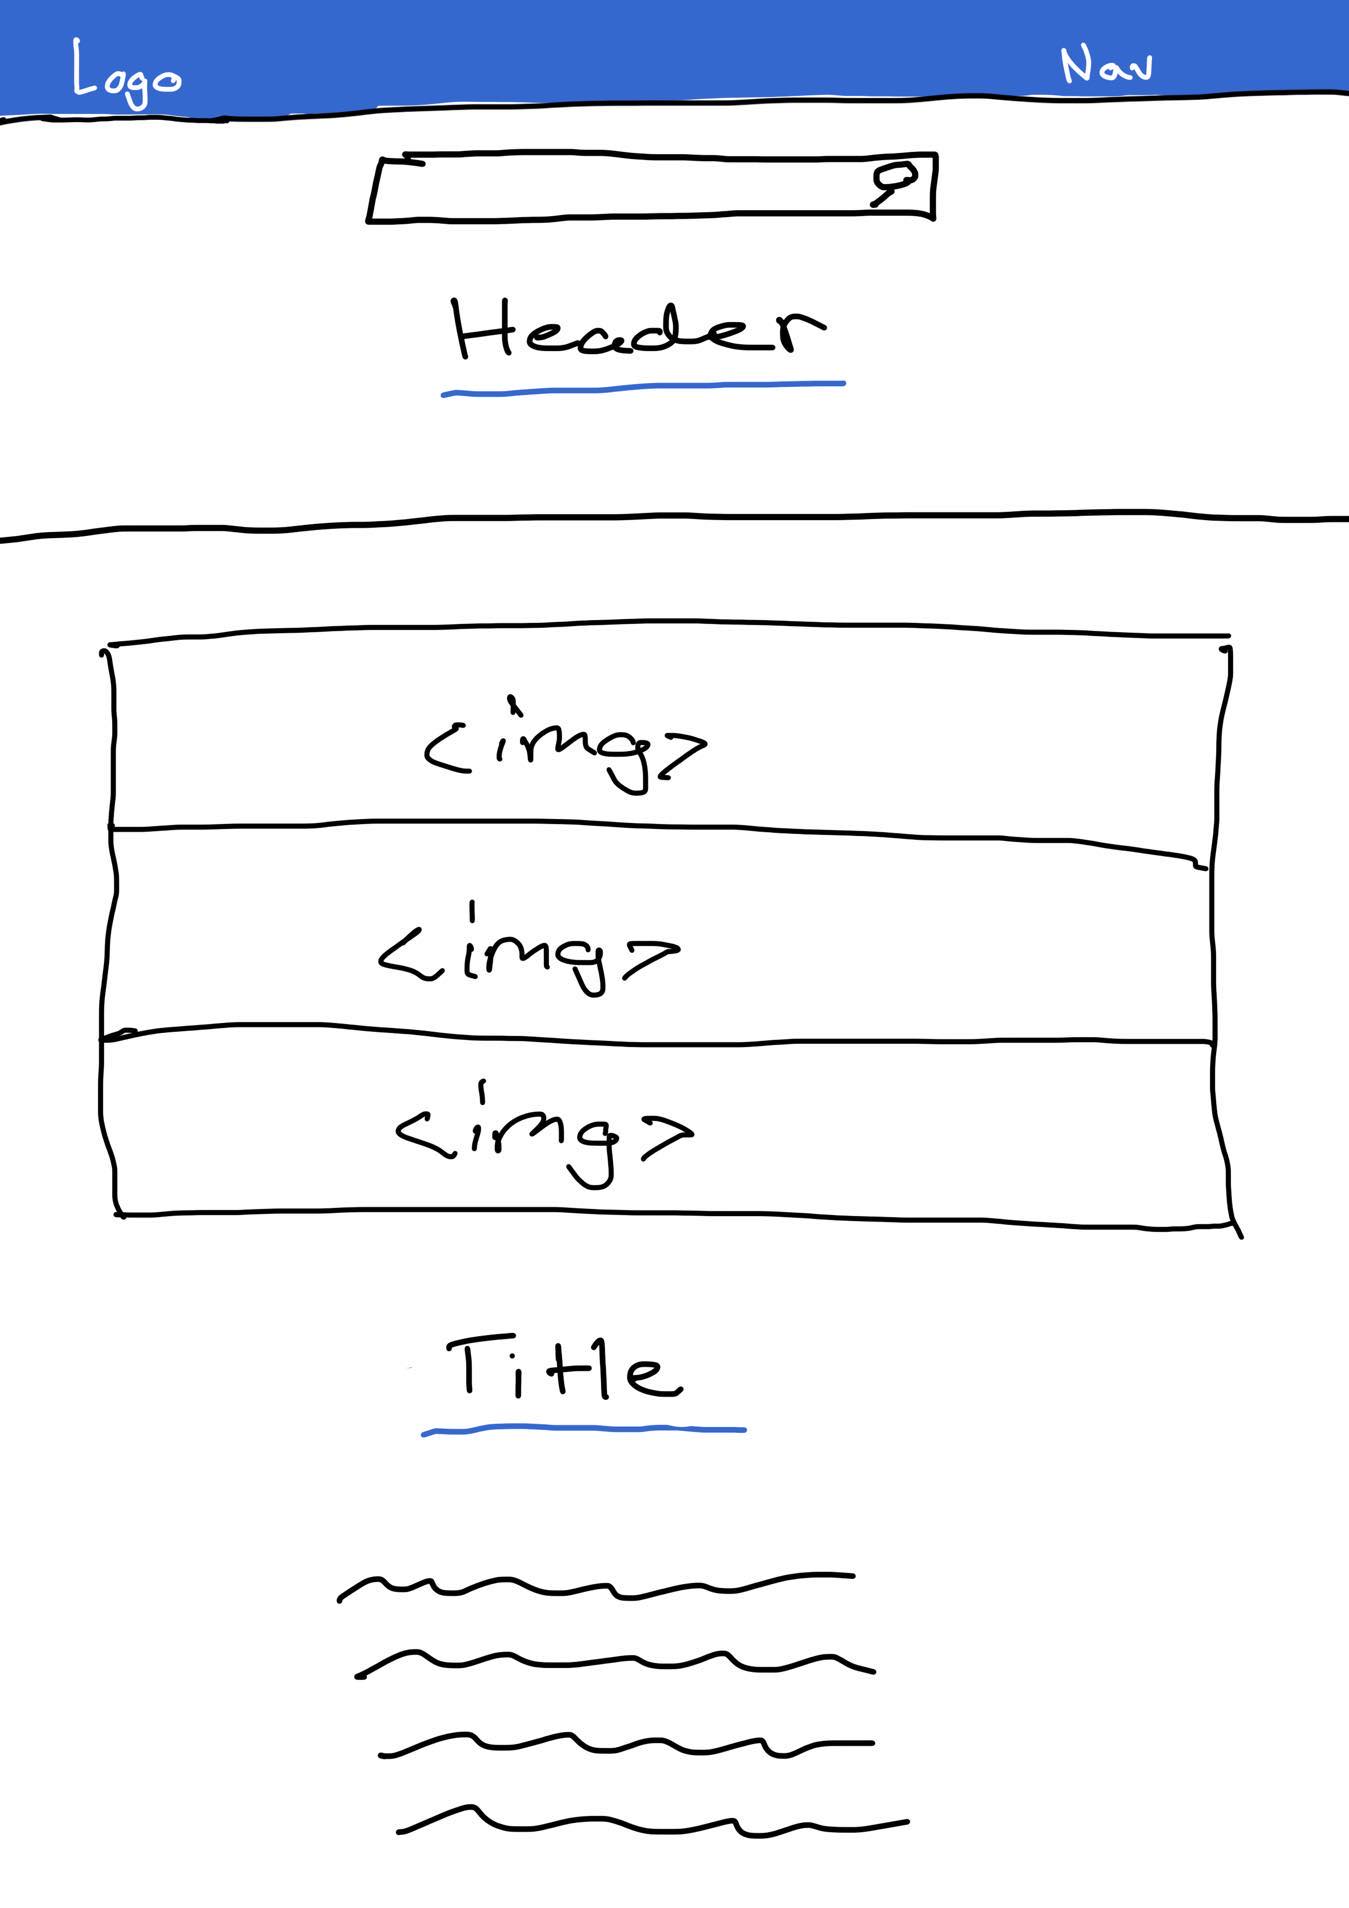 Logo
Nav
Header
<img>
<img>
<img>
Title